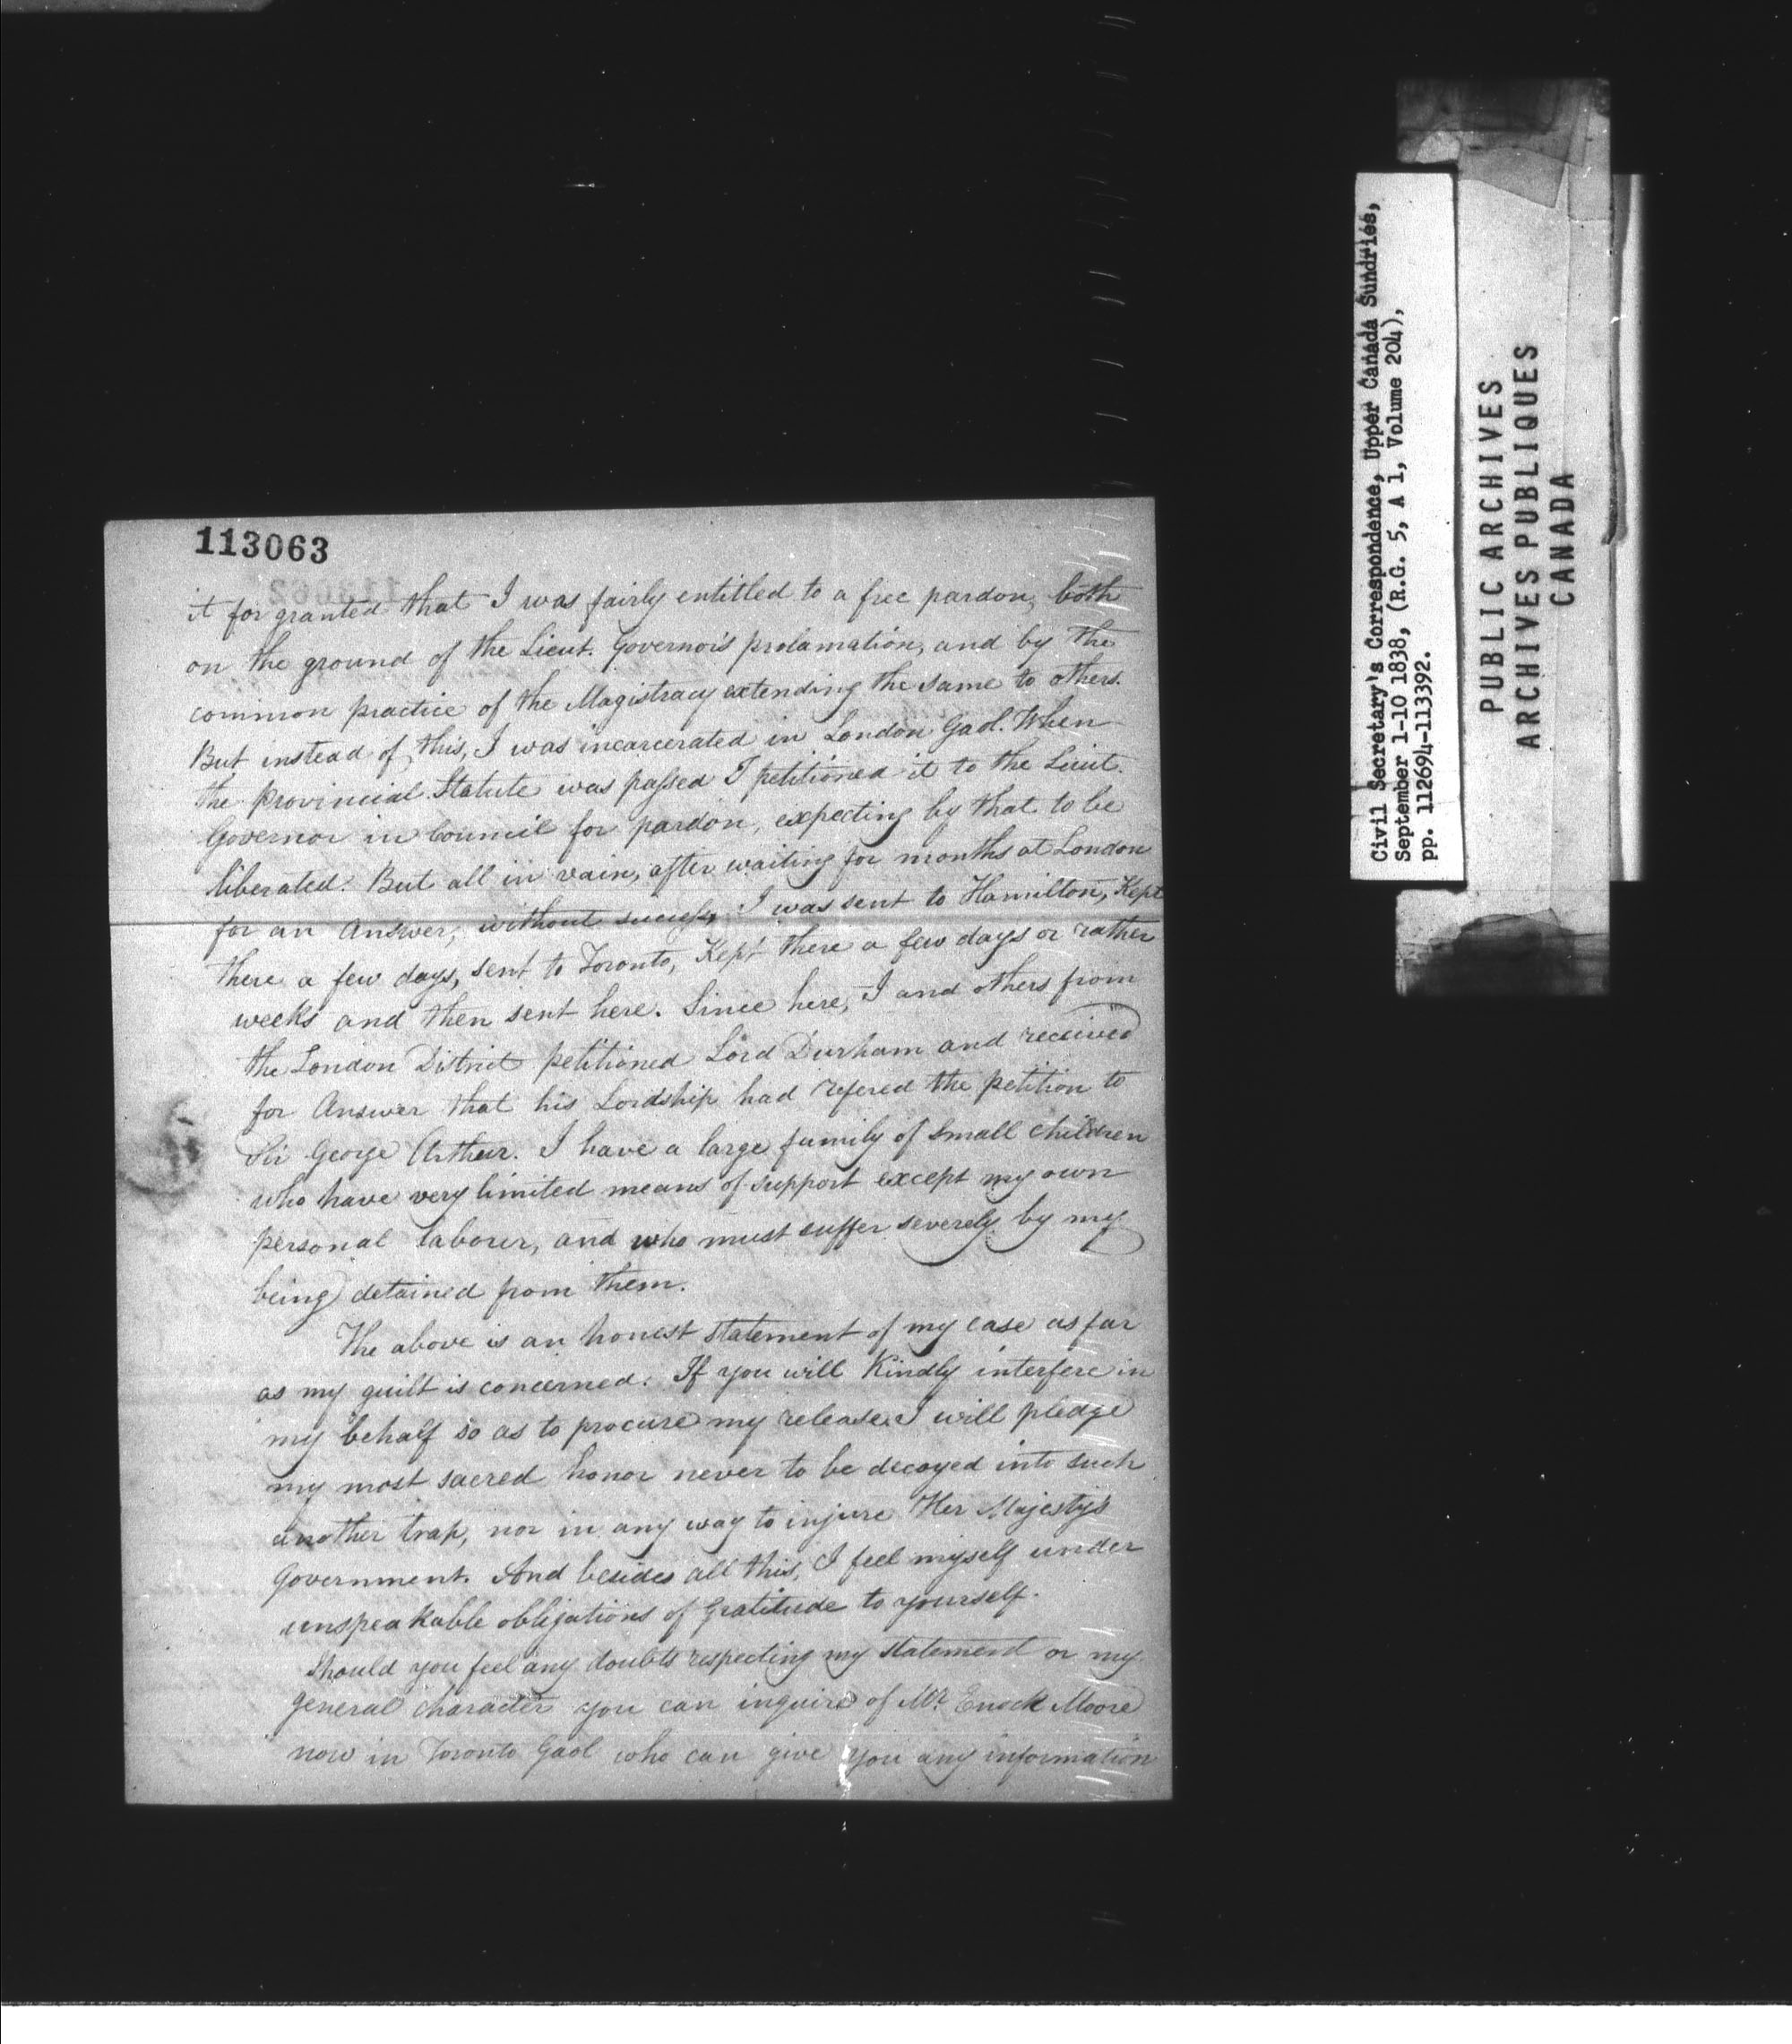 113063
it for granted that I was fairly entitled to a free pardon, both
on the ground of the Lieut. Governor's proclamation, and by the
common practice of the Magistracy extending the same to others.
But instead of this, I was incarcerated in London Gaol. When
the provincial Statute was passed I petitioned it to the Lieut.
Governor in Council for pardon, expecting by that to be
liberated. But all in vain, after waiting for months at London
for an Answer, without success, I was sent to Hamilton, Kept
there a few days, sent to Toronto, Kept there a few days or rather
weeks and then sent here. Since here, I and others from
the London District petitioned Lord Durham and received
for Answer that his Lordship had refered the petition to
Sir George Arthur. I have a large family of small children
who have very limited means of support except my own
personal labour, and who must suffer severely by my
being detained from them.
The above is an honest statement of my case as far
as my guilt is concerned. If you will Kindly interfere in
my behalf so as to procure my release I will pledge
my most sacred honor never to be decoyed into such
another trap, nor in any way to injure Her Majesty's
Government. And besides all this, I feel myself under
unspeakable obligations of gratitude to yourself.
Should you feel any doubts respecting my statement or my
general character you can inquire of Mr. Enock Moore
now in Toronto Gaol who can give you any information
Civil Secretary's Correspondence, Upper Canada Sundries,
September 1-10 1838, (R.G. 5, A 1, Volume 204),
pp. 112694-113392.
PUBLIC ARCHIVES
ARCHIVES PUBLIQUES
CANADA